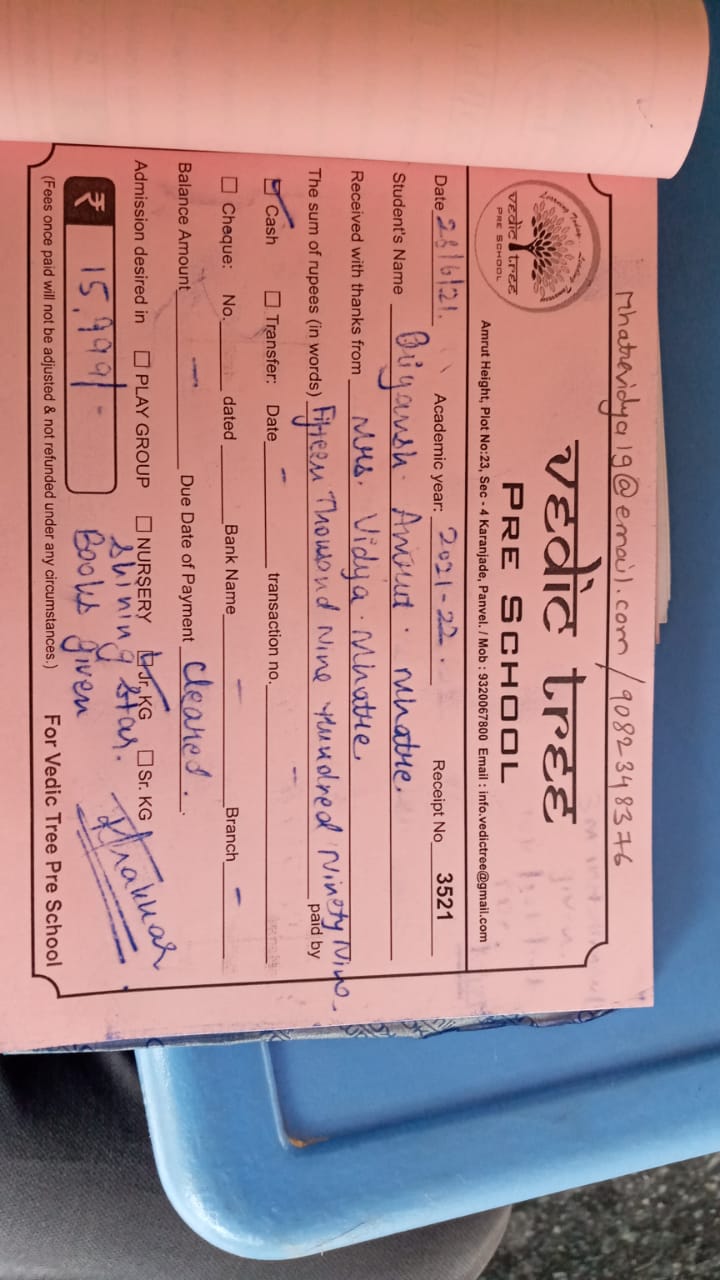 Mhatrevidya19@email.com/9082348376
vedic tree
PRE SCHOOL
vedic tree
PRE SCHOOL
Amrut Height, Plot No:23, Sec - 4 Karanjade, Panvel. / Mob : 9320067800 Email : info.vedictree@gmail.com
Date 28/6/21. Academic year: 2021-22. Receipt No 3521
Student's Name Mhatre.
Received with thanks from Mrs. Vidya. Mhatre
The sum of rupees (in words) Fifteen Thousand Nine Hundred Ninety Nine. paid by
Cash Transfer: Date - transaction no. -
Cheque: No. dated Bank Name - Branch -
Balance Amount - Due Date of Payment cleared.
Admission desired in PLAY GROUP NURSERY Jr. KG Sr. KG
Shining Star.
₹ 15,999/- Books given
(Fees once paid will not be adjusted & not refunded under any circumstances.) For Vedic Tree Pre School